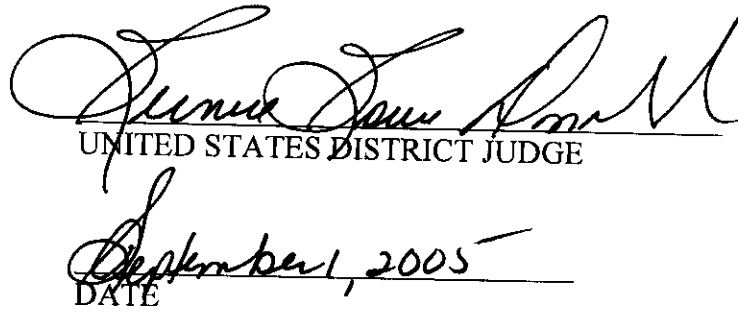 UNITED STATES DISTRICT JUDGE
September 1, 2005
DATE